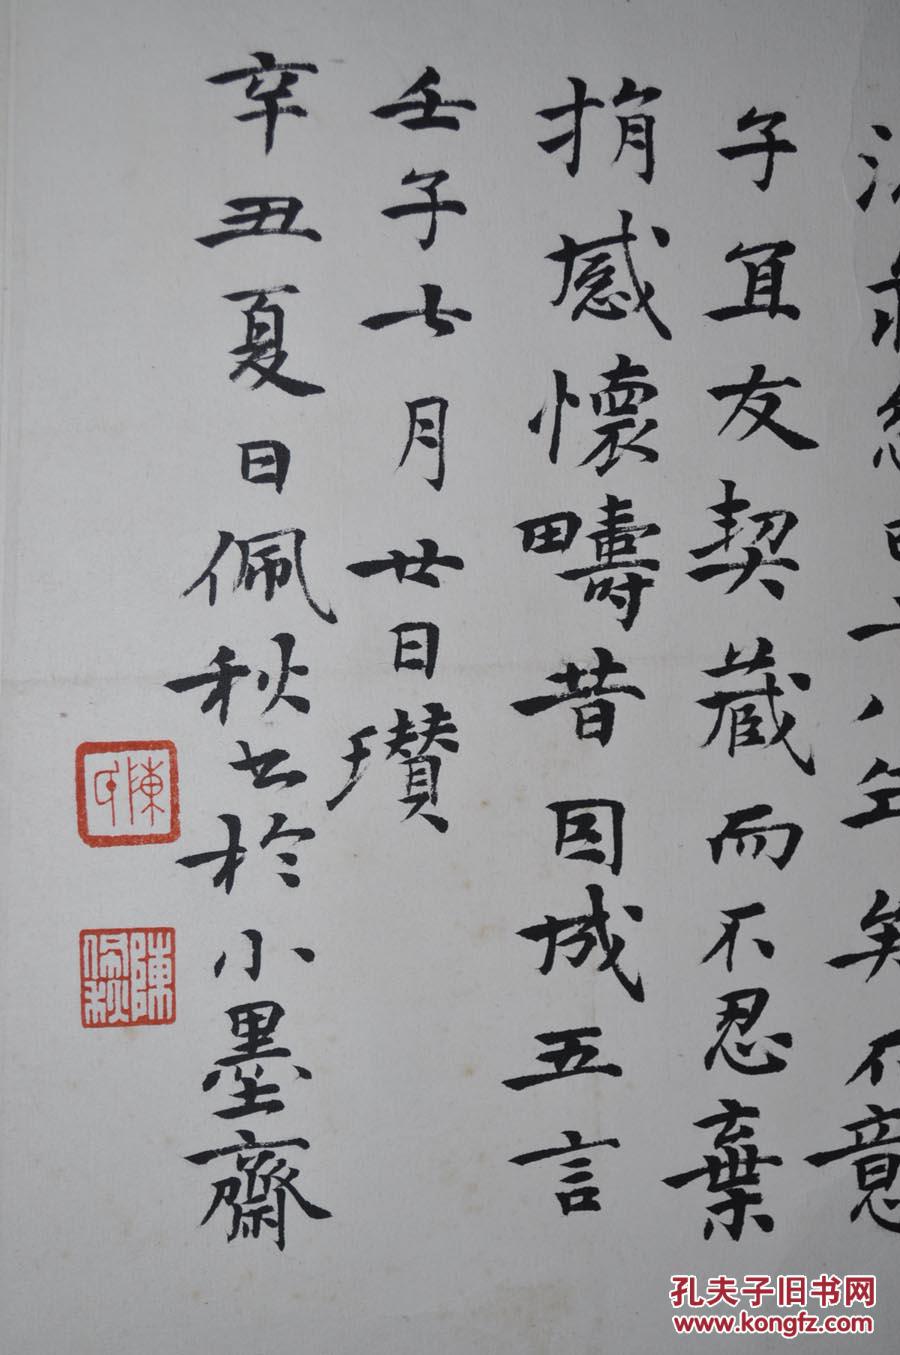 十八年矣不意
子宜友契藏而不忍棄
捐感懷疇昔因成五言
壬子七月廿日瓚
辛丑夏日佩秋书於小墨齋
陳氏
陳佩秋
孔夫子旧书网
www.kongfz.com